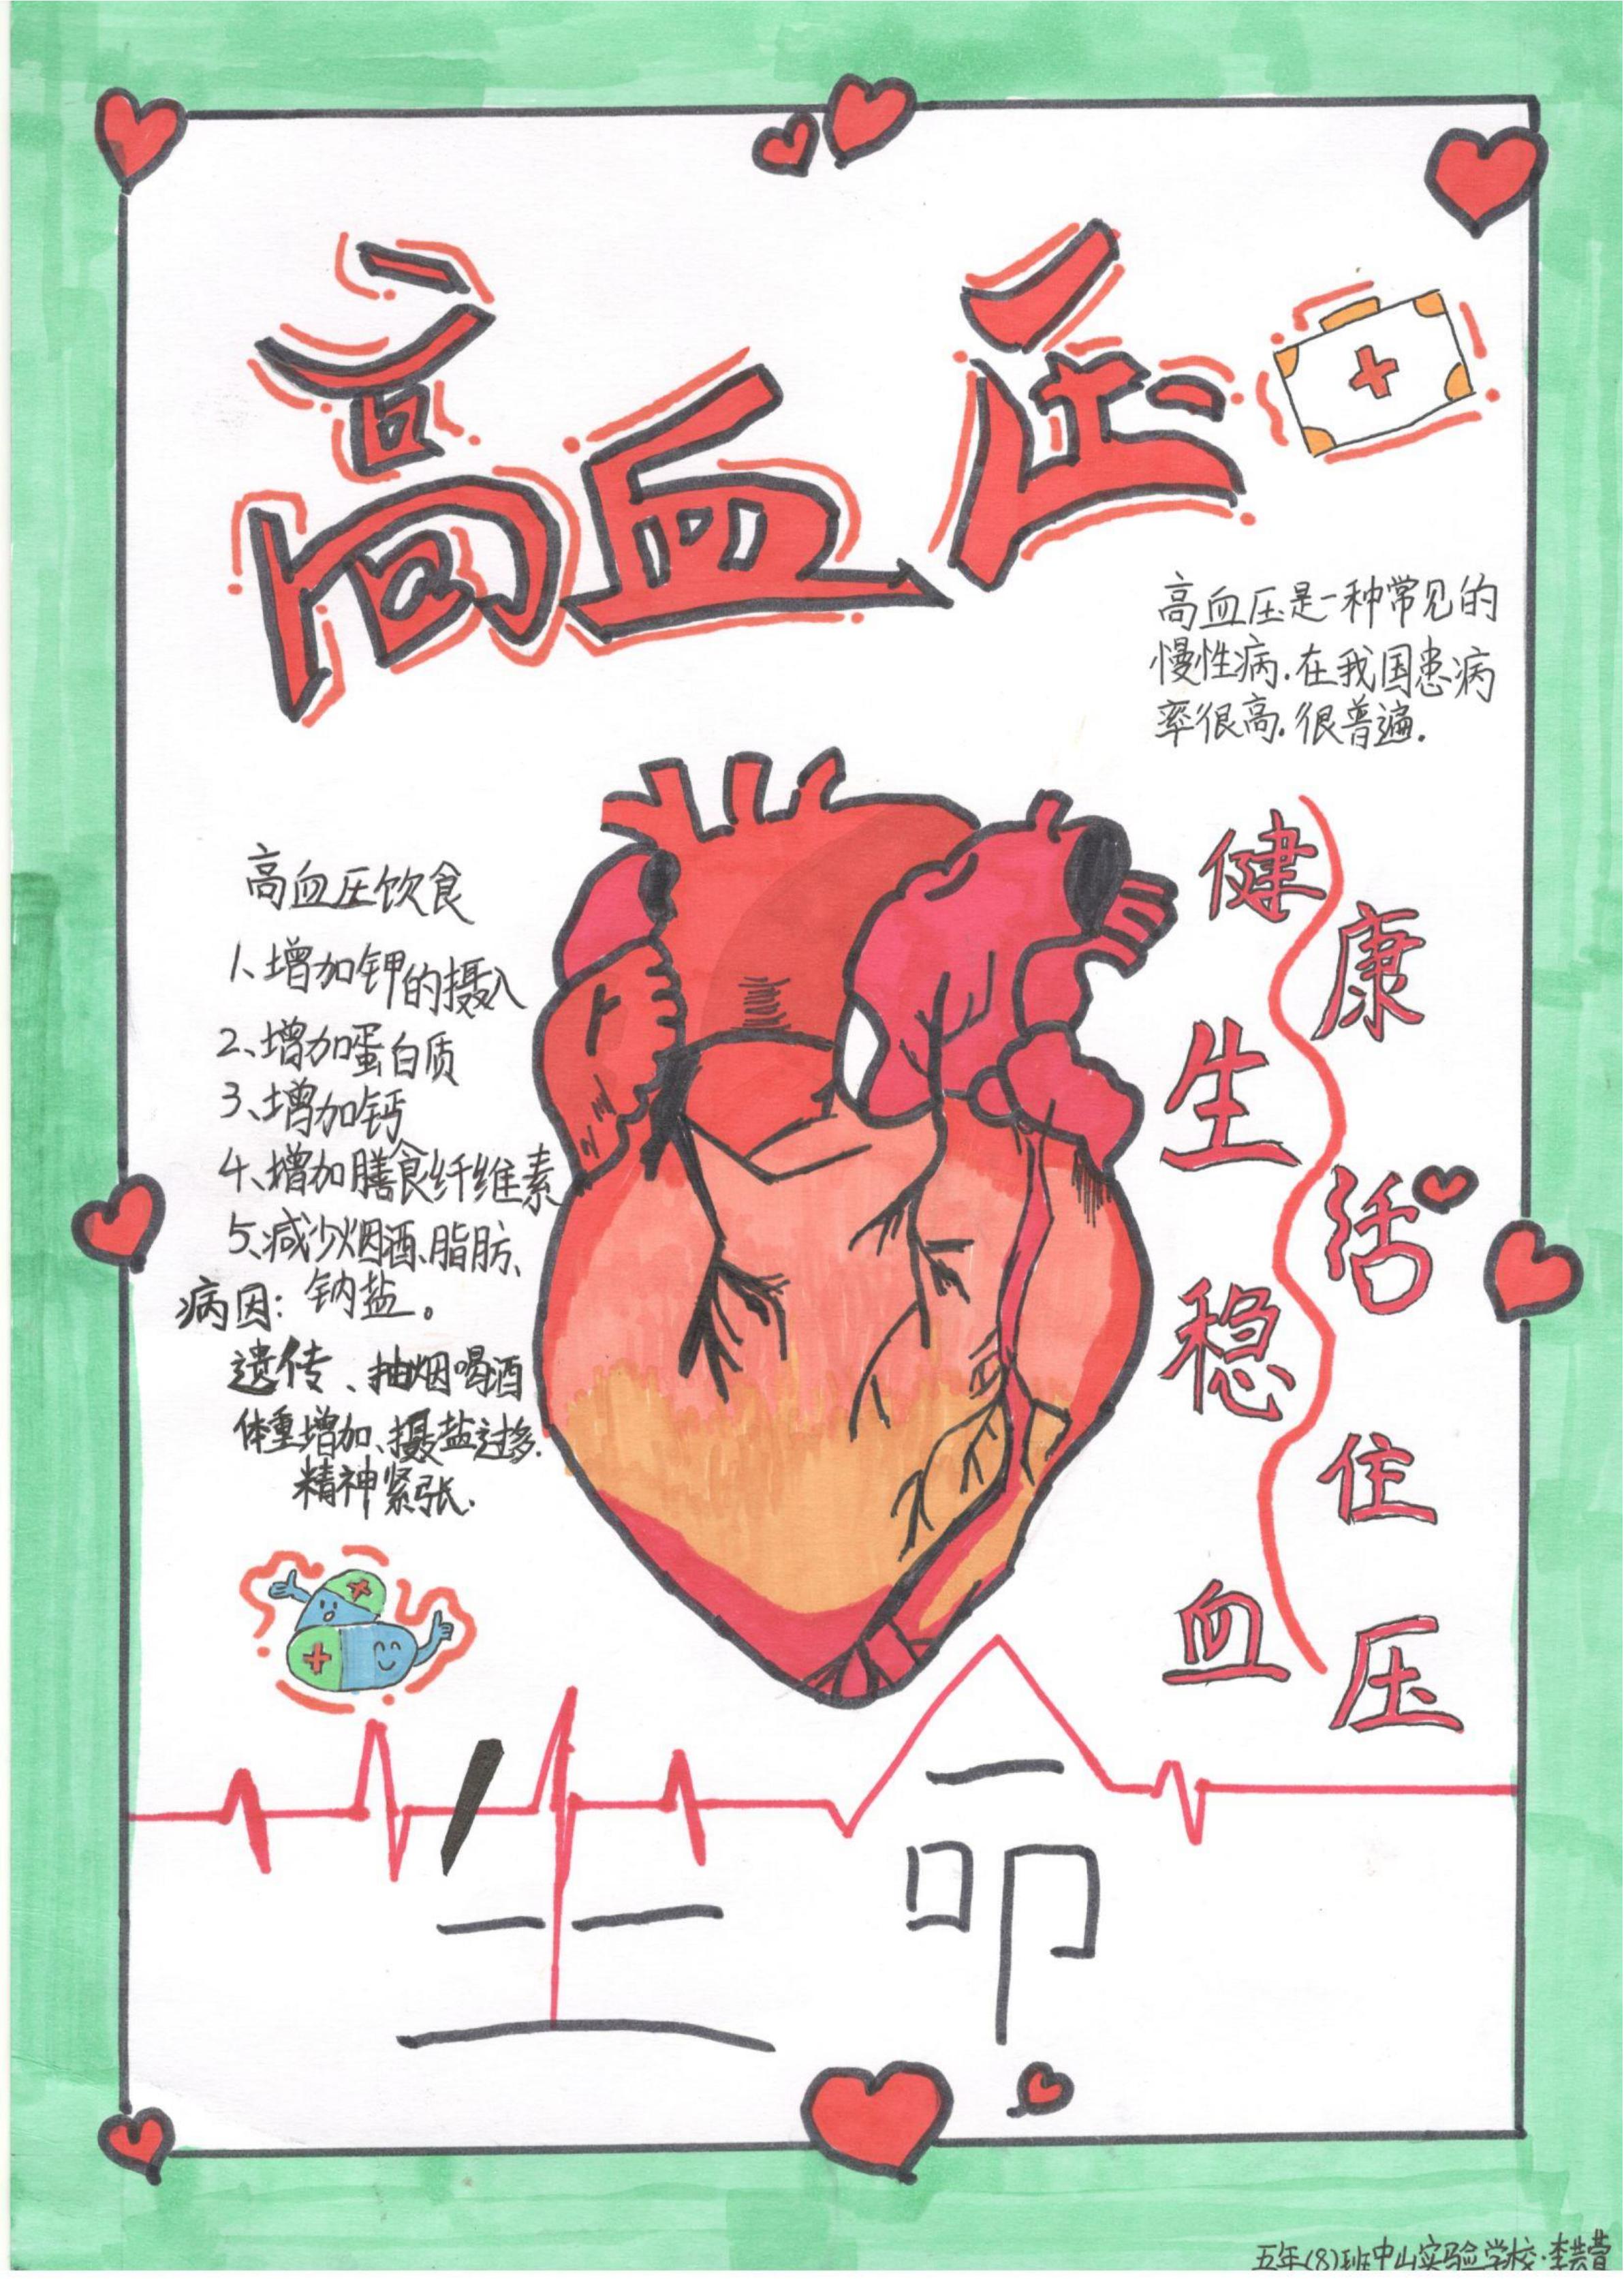 高血压
高血压是一种常见的
慢性病.在我国患病
率很高.很普遍.
高血压饮食
1、增加钾的摄入
2、增加蛋白质
3、增加钙
4、增加膳食纤维素
5、减少烟酒、脂肪、
钠盐。
病因:
遗传、抽烟喝酒
体重增加、摄盐过多.
精神紧张.
健康
生活
稳住
血压
生命
五年(8)班中山实验学校·李芸萱